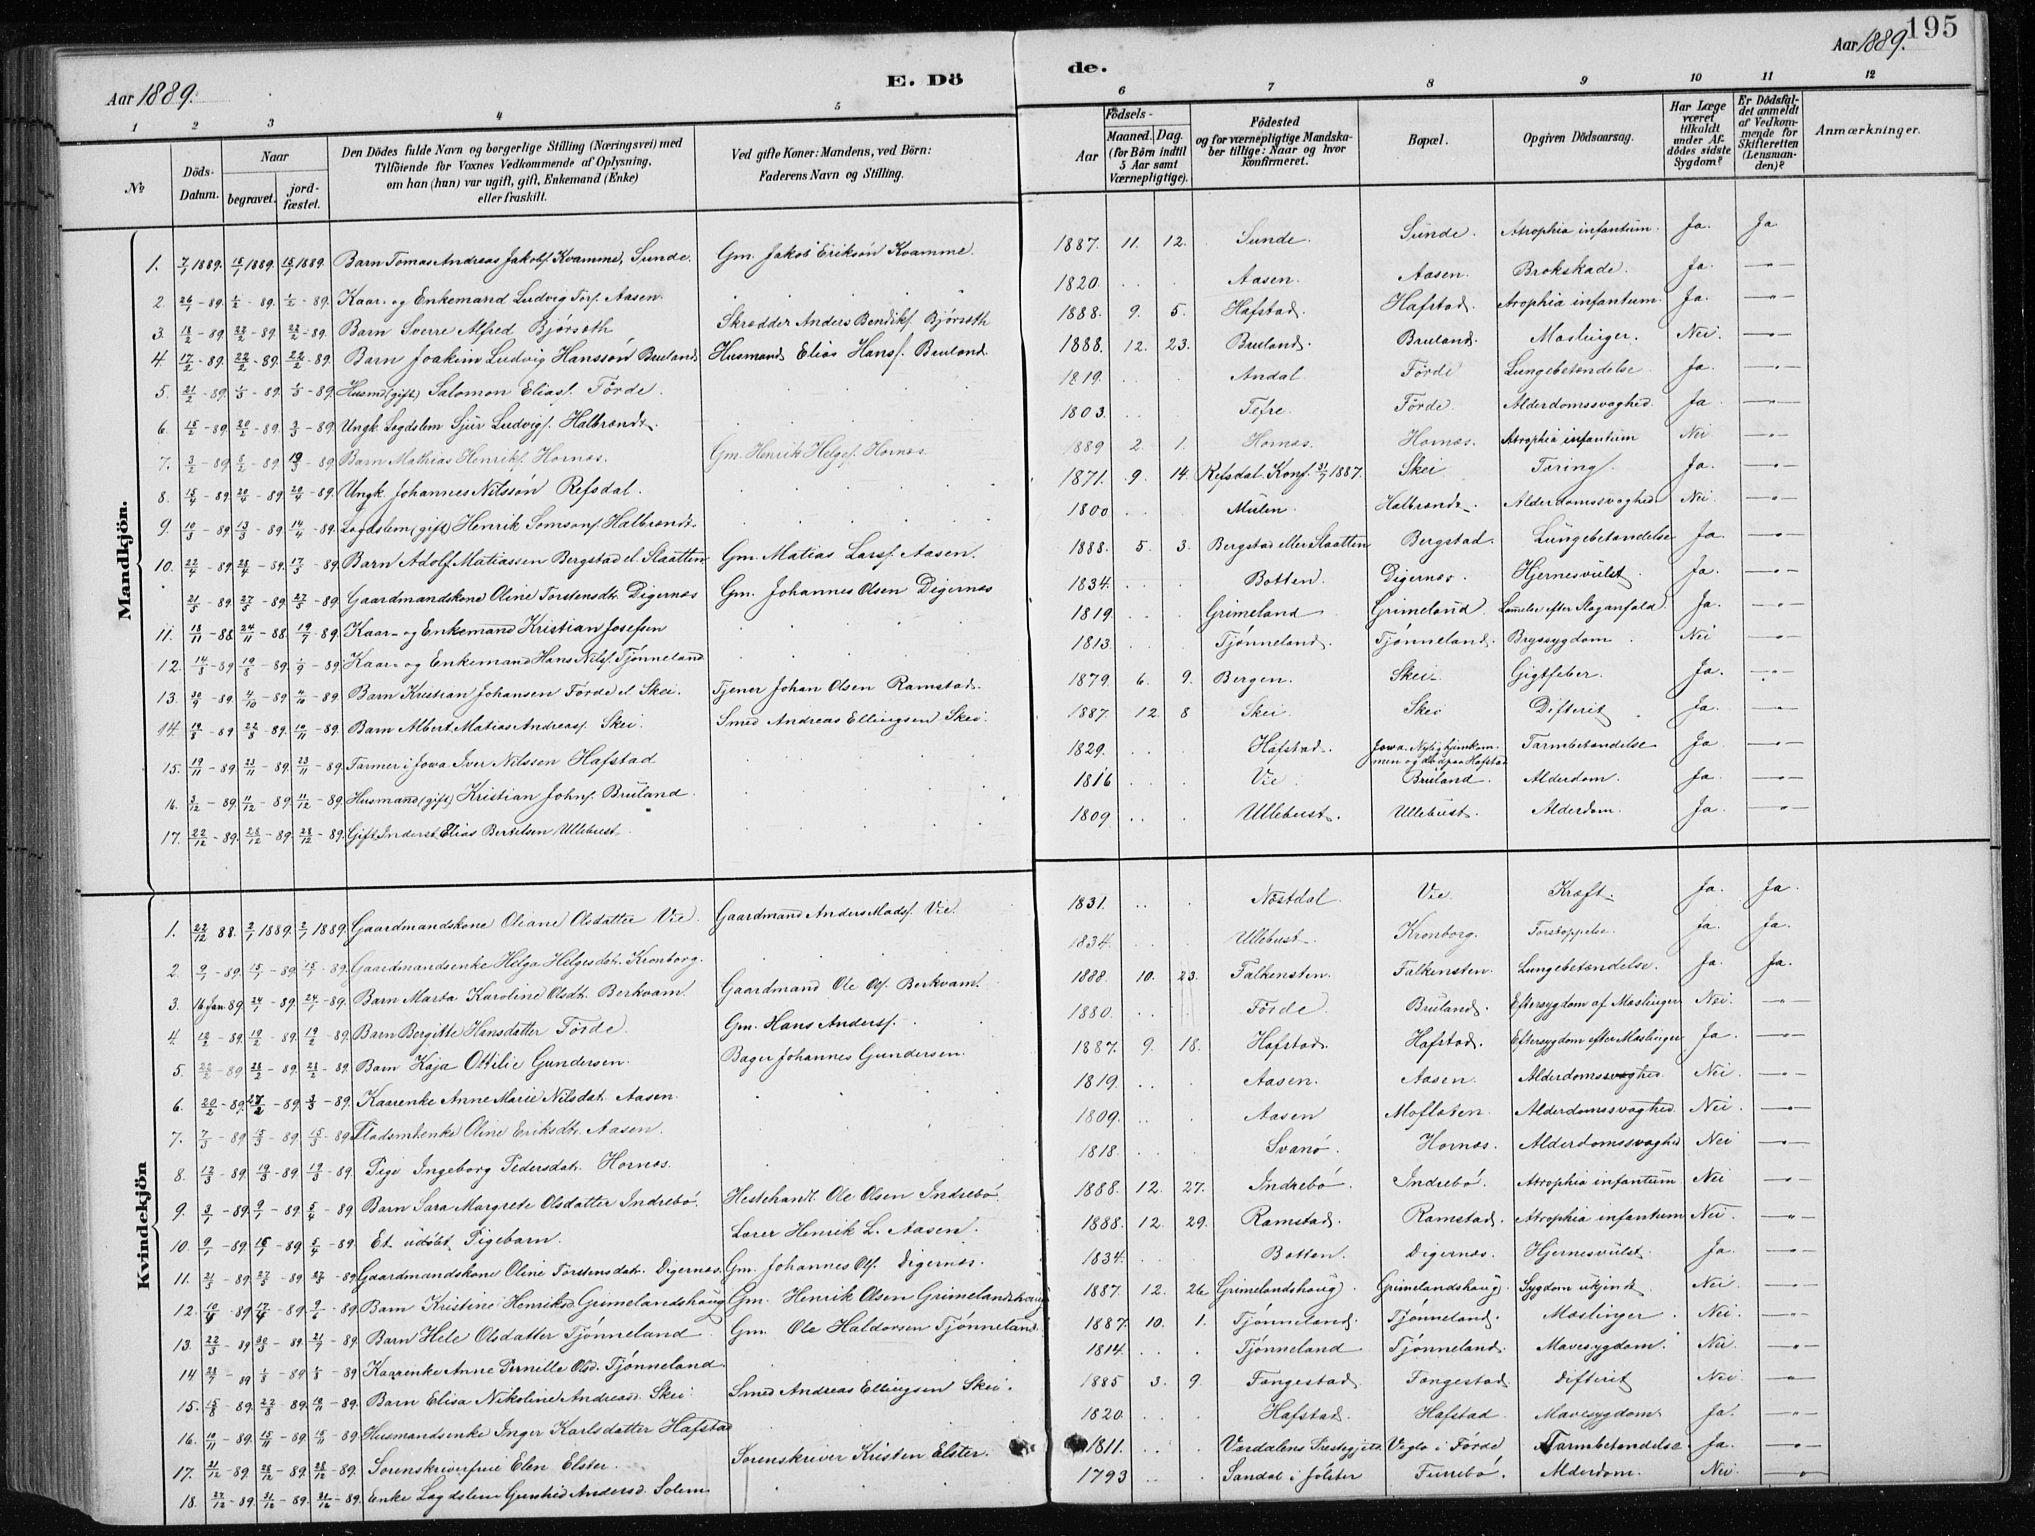 195
Aar 1889.
E. Dö
de.
Aar 1889.
1 2 3 4 5 6 7 8 9 10 11 12
№ Döds-Datum. Naar begravet. jord-fæstet. Den Dödes fulde Navn og borgerlige Stilling (Næringsvei) med Tilföiende for Voxnes Vedkommende af Oplysning, om han (hun) var ugift, gift, Enkemand (Enke) eller fraskilt. Ved gifte Koner: Mandens, ved Börn: Faderens Navn og Stilling. Födsels- Aar Maaned. Dag. (for Börn indtil 5 Aar samt Værnepligtige). Födested og for værnepligtige Mandskaber tillige: Naar og hvor Konfirmeret. Bopæl. Opgiven Dödsaarsag. Har Læge været tilkaldt under Afdödes sidste Sygdom? Er Dödsfaldet anmeldt af Vedkommende for Skifteretten (Lensmanden)? Anmærkninger.
Mandkjön.
1. 7/1 1889. 15/1 1889. 15/1 1889. Barn Tomas Andreas Jakobs. Kvamme, Sunde. Gm. Jakob Erikson Kvamme. 1887. 11. 12. Sunde. Sunde. Atrophia infantum. Ja. Ja
2. 26/1 - 89. 1/2 - 89. 1/2 - 89. Kaar- og Enkemand Ludvig Tors. Aasen. 1820. Aasen. Aasen. Brokskade. Ja. —"—
3. 18/2 - 89. 22/2 - 89. 22/2 - 89. Barn Sverre Alfred Bjørseth Skrædder Anders Bendiks. Bjørseth 1888. 9. 5. Hafstad. Hafstad. Atrophia infantum. Ja. —"—
4. 17/2 - 89. 22/2 - 89. 22/2 - 89. Barn Joakim Ludvig Hansson Bruland Husmand Elias Hans. Bruland. 1888. 12. 23. Bruland. Bruland. Maslinger. Nei. —"—
5. 21/2 - 89. 1/3 - 89. 1/3 - 89. Husmd (gift) Salomon Elias. Förde. 1819. Andal Förde. Lungebetændelse Ja. —"—
6. 15/2 - 89. 20/2 - 89. 3/3 - 89. Ungk. Logdslem Sjur Ludvigs. Halbrendt. 1803. Tefre Förde. Alderdomssvaghed. Ja —"—
7. 3/2 - 89. 8/2 - 89. 19/3 - 89. Barn Mathias Henriks. Hornæs. Gm. Henrik Helges. Hornæs. 1889 2. 1. Hornæs. Hornæs. Atrophia infantum Nei —"—
8. 15/4 - 89. 20/4 - 89. 20/4 - 89. Ungk. Johannes Nilsson Refsdal. 1871. 9. 14. Refsdal. Konf. 1887. Skei Tæring. Ja. —"—
9. 10/3 - 89. 13/3 - 89. 14/4 - 89. Logdslem (gift) Henrik Samsons. Halbrendt. 1800 Mulen Halbrendt. Alderdomssvaghed Nei —"—
10. 22/4 - 89. 28/4 - 89. 17/5 - 89. Barn Adolf Matiassen Bergstad el. Slaatten Gm. Matias Lars. Aasen. 1888. 5. 3. Bergstad eller Slaatten Bergstad. Lungebetændelse Ja. —"—
21/5 - 89. 27/5 - 89. 27/5 - 89. Gaardmandskone Oline Torstensdt. Digernæs Gm. Johannes Olsen Digernæs 1834. Botten. Digernæs. Hjernesvulst. Ja. —"—
11. 18/11 - 88. 24/11 - 88. 19/7 - 89. Kaar- og Enkemand Kristian Josefsen 1819. Grimeland Grimeland Lamelse efter Slaganfald. Ja. —"—
12. 14/8 - 89. 19/8 - 89. 1/9 - 89. Kaar- og Enkemand Hans Nils. Tjønneland 1813. Tjønneland. Tjønneland. Brystsygdom Nei —"—
13. 30/9 - 89. 4/10 - 89. 4/10 - 89. Barn Kristian Johansen Förde el. Skei. Tjener Johan Olsen Ramstad. 1879 6. 9. Bergen. Skei. Gigtfeber. Ja. —"—
14. 19/8 - 89 22/8 - 89. 10/11 - 89. Barn Albert Matias Andreas. Skei. Smed Andreas Ellingsen Skei. 1887. 12. 8 Skei. Skei Difterit Ja. —"—
15. 19/11 - 89 23/11 - 89 23/11 - 89. Farmer i Jowa Iver Nilssen Hafstad 1829. Hafstad. Jowa. Nylig hjemkommen og død paa Hafstad Tarmbetændelse Ja —"—
16. 3/12 - 89. 11/12 - 89. 11/12 - 89. Husmand (gift) Kristian Johns. Bruland. 1816 Vie Bruland. Alderdom. Ja —"—
17. 22/12 - 89. 28/12 - 89. 28/12 - 89. Gift Inderst Elias Bertelsen Ullebust. 1809 Ullebust. Ullebust. Alderdom. Ja —"—
Kvindekjön
1. 22/12 88. 2/1 1889. 2/1 1889. Gaardmandskone Oliane Olsdatter Vie. Gaardmand Anders Mads. Vie. 1831. Næstdal. Vie. Kræft. Ja. Ja.
2. 9/1 - 89. 15/1 - 89 15/1 - 89. Gaardmandsenke Helga Helgesdat. Kronborg. 1834. Ullebust. Kronborg. Forstoppelse. Ja. Ja.
3. 16 Jan 89. 24/1 - 89. 24/1 - 89. Barn Marta Karoline Olsdt. Berkvam. Gaardmand Ole Ols. Berkvam. 1888. 10. 23. Falkensten. Falkensten. Lungebetændelse. Ja. Ja.
4. 12/2 - 89. 19/2 - 89. 19/2 - 89. Barn Bergitte Hansdatter Förde. Gm. Hans Anders. 1880. Förde. Bruland. Eftersygdom af Maslinger Nei. —"—
5. 22/2 - 89 28/2 - 89. 28/2 - 89. Barn Kaja Ottilie Gundersen. Bager Johannes Gundersen. 1887. 9. 18. Hafstad. Hafstad. Eftersygdom efter Maslinger Ja. —"—
6. 20/2 - 89. 27/2 - 89. 3/3 - 89. Kaarenke Anne Marie Nilsdat. Aasen. 1819. Aasen. Aasen. Alderdomssvaghed. Nei. —"—
7. 7/3 - 89. 15/3 - 89. 15/3 - 89. Pladsmdenke Oline Eriksdtr. Aasen. 1809. Aasen Moflaten. Alderdomssvaghed. Nei. —"—
8. 12/3 - 89. 19/3 - 89. 19/3 - 89. Pige Ingeborg Pedersdat. Hornæs. 1818. Svanø Hornæs. Alderdomssvaghed Nei —"—
9. 3/1 - 89. 9/1 - 89. 5/4 - 89 Barn Sara Margrete Olsdatter Indrebø. Hestehandl. Ole Olsen Indrebø. 1888. 12. 27. Indrebø. Indrebø. Atrophia infantum Nei —"—
10. 9/1 - 89. 15/1 - 89. 5/4 - 89. Et udøbt Pigebarn. Lærer Henrik L. Aasen. 1888. 12. 29. Ramstad. Ramstad. Atrophia infantum Nei. —"—
11. 21/5 - 89. 27/5 - 89 27/5 - 89 Gaardmandskone Oline Torstensdat. Digernæs. Gm. Johannes Ols. Digernæs. 1834. Botten. Digernæs. Hjernesvulst. Ja. —"—
12. 10/4 - 89 17/4 - 89 9/6 - 89. Barn Kristine Henriksd. Grimelandshaug Gm. Henrik Olsen Grimelandshaug 1887. 12. 26 Grimelandshaug. Grimelandshaug. Sygdom ukjendt Nei —"—
13. 22/3 - 89 30/3 - 89. 21/7 - 89. Barn Hele Olsdatter Tjønneland Gm. Ole Haldorsen Tjønneland. 1887. 10. 1. Tjønneland. Tjønneland. Maslinger Nei. —"—
14 28/7 - 89 1/8 - 89 - 89 Kaarenke Anne Pernille Olsd. Tjønneland. 1814. Tjønneland Tjønneland. Mavesygdom. Nei. —"—
15. 15/8 - 89. 22/8 - 89. 10/11 - 89. Barn Elisa Nikoline Andreasd. Skei. Smed Andreas Ellingsen Skei. 1885 3. 9. Fangestad. Fangestad. Difterit Nei —"—
16. 10/11 - 89. 15/11 - 89. 15/11 - 89. Husmandsenke Inger Karlsdatter Hafstad 1820. Hafstad. Hafstad Mavesygdom. Ja. —"—
17. 21/12 - 89. 28/12 - 89. 28/12 - 89. Sorenskriverfrue Elen Elster. Sorenskriver Kristen Elster. 1811. Vardalens Prestegjeld Vegla i Förde Tarmbetændelse. Ja. —"—
18. 22/12 - 89. 31/12 - 89. 31/12 - 89. Enke Logdslem Gunhild Andersd. Solem. 1793 Sandal i Jølster Furrebø. Alderdom. Nei. —"—